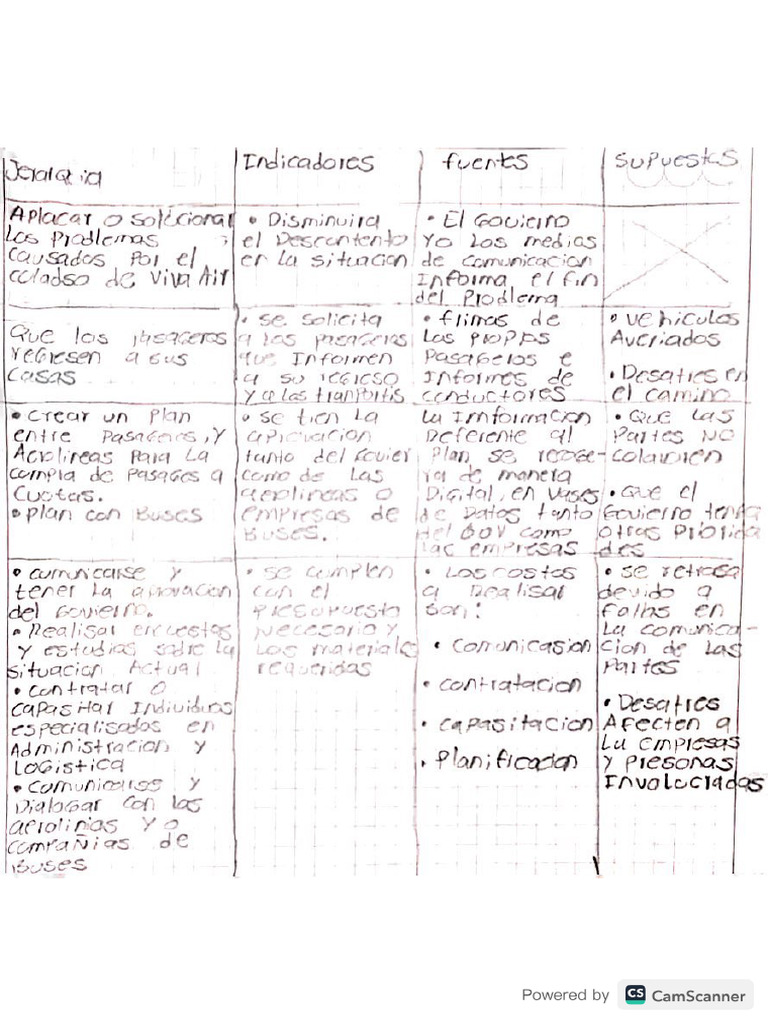 Jeralquia
Indicadores
fuentes
Supuestos
Aplacar o solucionar
los Problemas
causados por el
coladso de Viva Air
• Disminuira
el Descontento
en la situacion
• El Govierno
Yo los medios
de comunicacion
Informa el fin
del Problema
Que los pasageros
regresen a sus
casas
• se solicita
a los pasageros
que Informen
a su regreso
• firmas de
los propios
Pasageros e
Informes de
conductores
• vehiculos
Averiados
• Desatres en
el camino
• Crear un Plan
entre Pasageros, y
Aerolineas Para la
compra de Pasages a
cuotas.
• plan con Buses
• se tien la
aprovacion
tanto del Govier
como de las
aerolineas o
empresas de
Buses.
la Imformacion
Deferente al
Plan se recoge-
ra de manera
Digital, en vases
de Datos tanto
del Gov como
las empresas
• Que las
Partes No
colavoren
• Que el
Govierno tenga
otras Priorida
des
• comunicarse y
tener la aprovacion
del Govierno.
• Realisar encuestas
y estudios sobre la
situacion Actual
• contratar o
capasitar Individuos
especialisados en
Administracion y
Logistica
• comunicarse y
Dialogar con las
aerolinias y o
compañias de
Buses
• se cumplen
con el
Presupuesto
Necesario y
Los materiales
requeridas
• Los costos
a Realisar
son:
• comunicasion
• contratacion
• capasitacion
• Planificacion
• se retrasa
devido a
fallas en
La comunica-
cion de las
Partes
• Desatres
Afecten a
La empresas
y Presonas
Involucradas
Powered by CS CamScanner